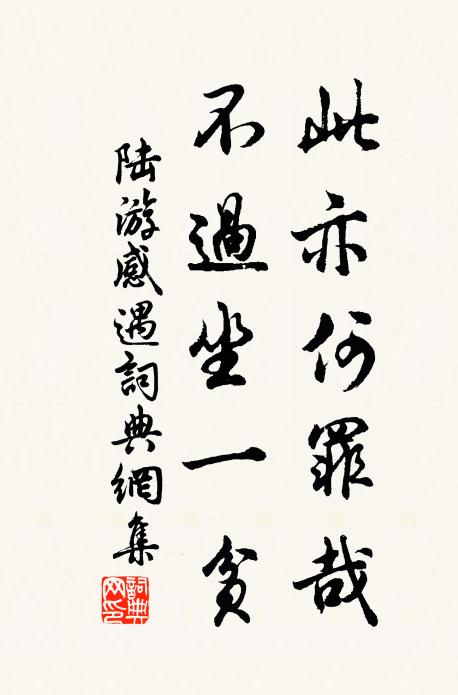 此亦何罪哉
不過坐一貧
陆游感遇詞典網集
詞典網印